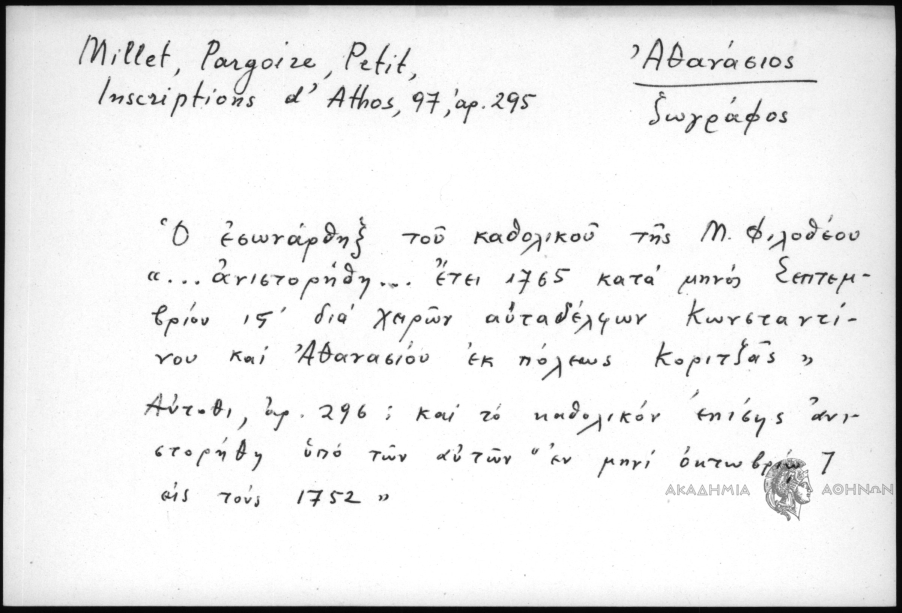 Millet, Pargoire, Petit,
Inscriptions d' Athos, 97, ἀρ. 295
Ἀθανάσιος
ζωγράφος
Ὁ ἐσωνάρθηξ τοῦ καθολικοῦ τῆς Μ. Φιλοθέου
«... ἀνιστορήθη... Ἔτει 1765 κατά μηνός Σεπτεμ-
βρίου ις' διά χειρῶν αὐταδέλφων Κωνσταντί-
νου καί Ἀθανασίου ἐκ πόλεως Κοριτζᾶς »
Αὐτοθι, ἀρ. 296 ; καί τό καθολικόν ἐπίσης ἀνι-
στορήθη ὑπό τῶν αὐτῶν "ἐν μηνί ὀκτωβρίῳ 7
εἰς τούς 1752 »
ΑΚΑΔΗΜΙΑ ΑΘΗΝΩΝ